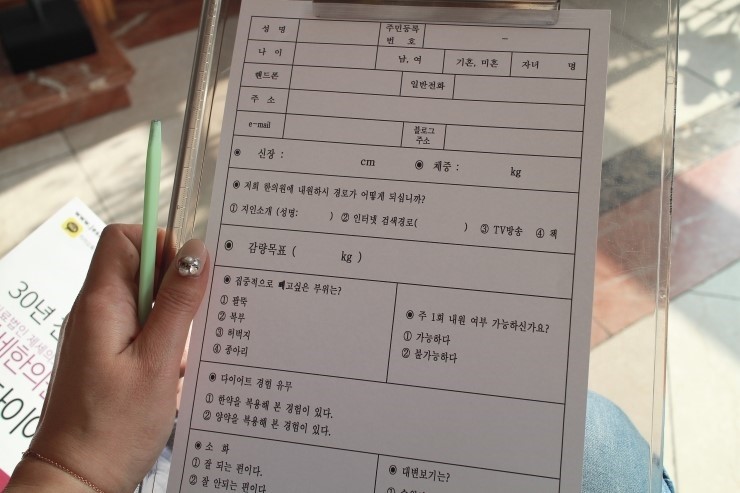 성 명
주민등록
번 호 –
나 이
남, 여
기혼, 미혼
자녀 명
핸드폰
일반전화
주 소
e-mail
블로그
주소
◉ 신장 : cm ◉ 체중 : kg
◉ 저희 한의원에 내원하시 경로가 어떻게 되십니까?
① 지인소개 (성명: ) ② 인터넷 검색경로( ) ③ TV방송 ④ 책
◉ 감량목표 ( kg )
◉ 집중적으로 빼고싶은 부위는?
① 팔뚝
② 복부
③ 허벅지
④ 종아리
◉ 주 1회 내원 여부 가능하신가요?
① 가능하다
② 불가능하다
◉ 다이어트 경험 유무
① 한약을 복용해 본 경험이 있다.
② 양약을 복용해 본 경험이 있다.
◉ 소 화
① 잘 되는 편이다.
② 잘 안되는 편이다.
◉ 대변보기는?
①
www.
30년